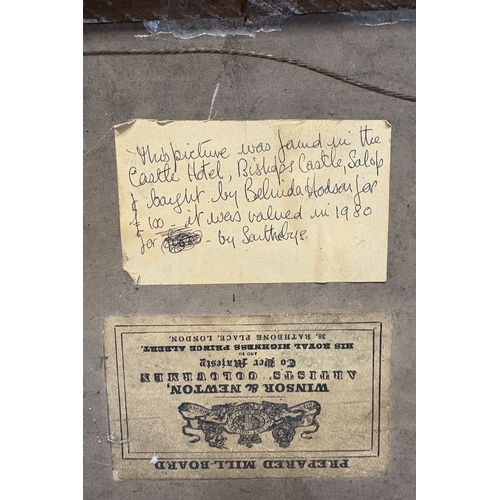 This picture was found in the
Castle Hotel, Bishops Castle, Salop
& bought by Belinda Hodson for
£100 - it was valued in 1980
for - by Sothebys.
PREPARED MILL-BOARD
WINSOR & NEWTON,
ARTISTS' COLOURMEN
To Her Majesty
AND TO
HIS ROYAL HIGHNESS PRINCE ALBERT,
38, RATHBONE PLACE, LONDON.